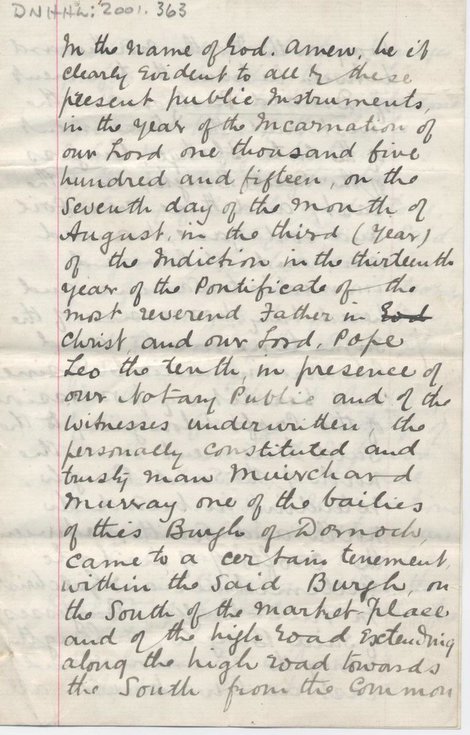 DNHHL: 2001.363
In the name of God. Amen, be it
clearly Evident to all by these
present public Instruments,
in the year of the Incarnation of
our Lord one thousand five
hundred and fifteen, on the
Seventh day of the Month of
August, in the third (Year)
of the Indiction in the thirteenth
year of the Pontificate of the
most reverend Father in God
Christ, and our Lord, Pope
Leo the tenth, in presence of
our Notary Public and of the
witnesses underwritten the
personally constituted and
trusty man Muirchard
Murray one of the bailies
of this Burgh of Dornoch,
came to a certain tenement,
within the Said Burgh, on
the South of the market-place
and of the high Road Extending
along the high Road towards
the South from the Common